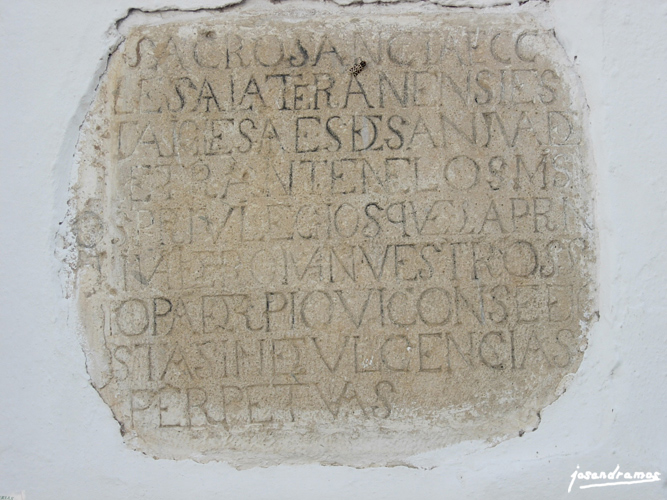 SACROSANCTA ECCL
LESA LATERANENSI ES
TA IGLESA ES DE SAN JUAD
LETRAN TENE LOS MS
OS PRIVILEGIOS QUE LA PRIN
ROMAN VESTROS
PADR PIO VI CONSEDI
ESTAS INDULGENCIAS
PERPETUAS
josandramos